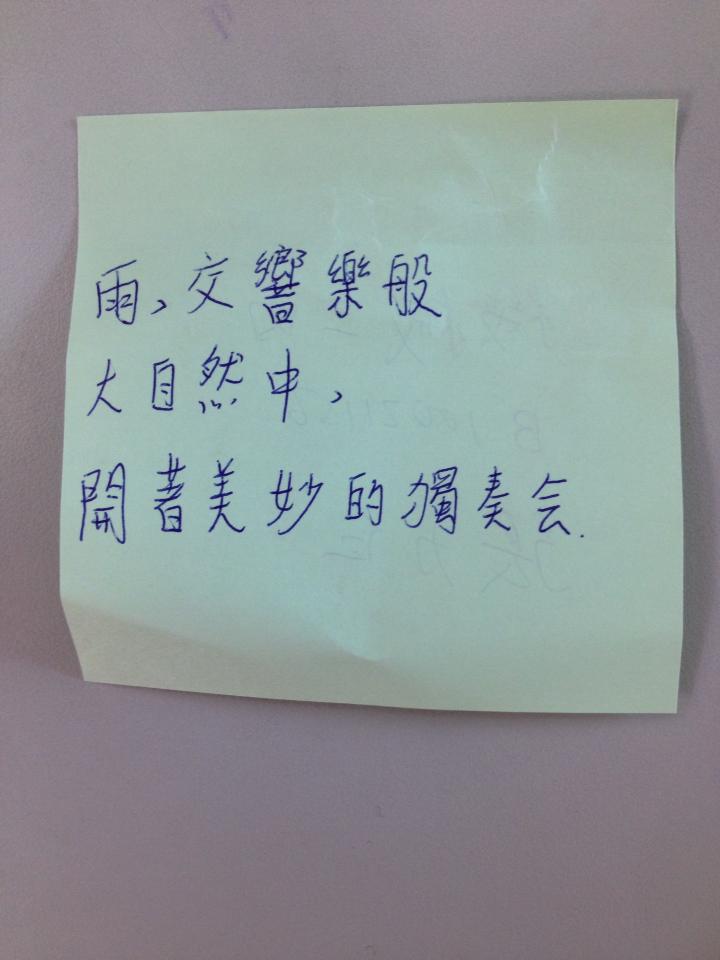 雨、交響樂般
大自然中,
開著美妙的獨奏会.